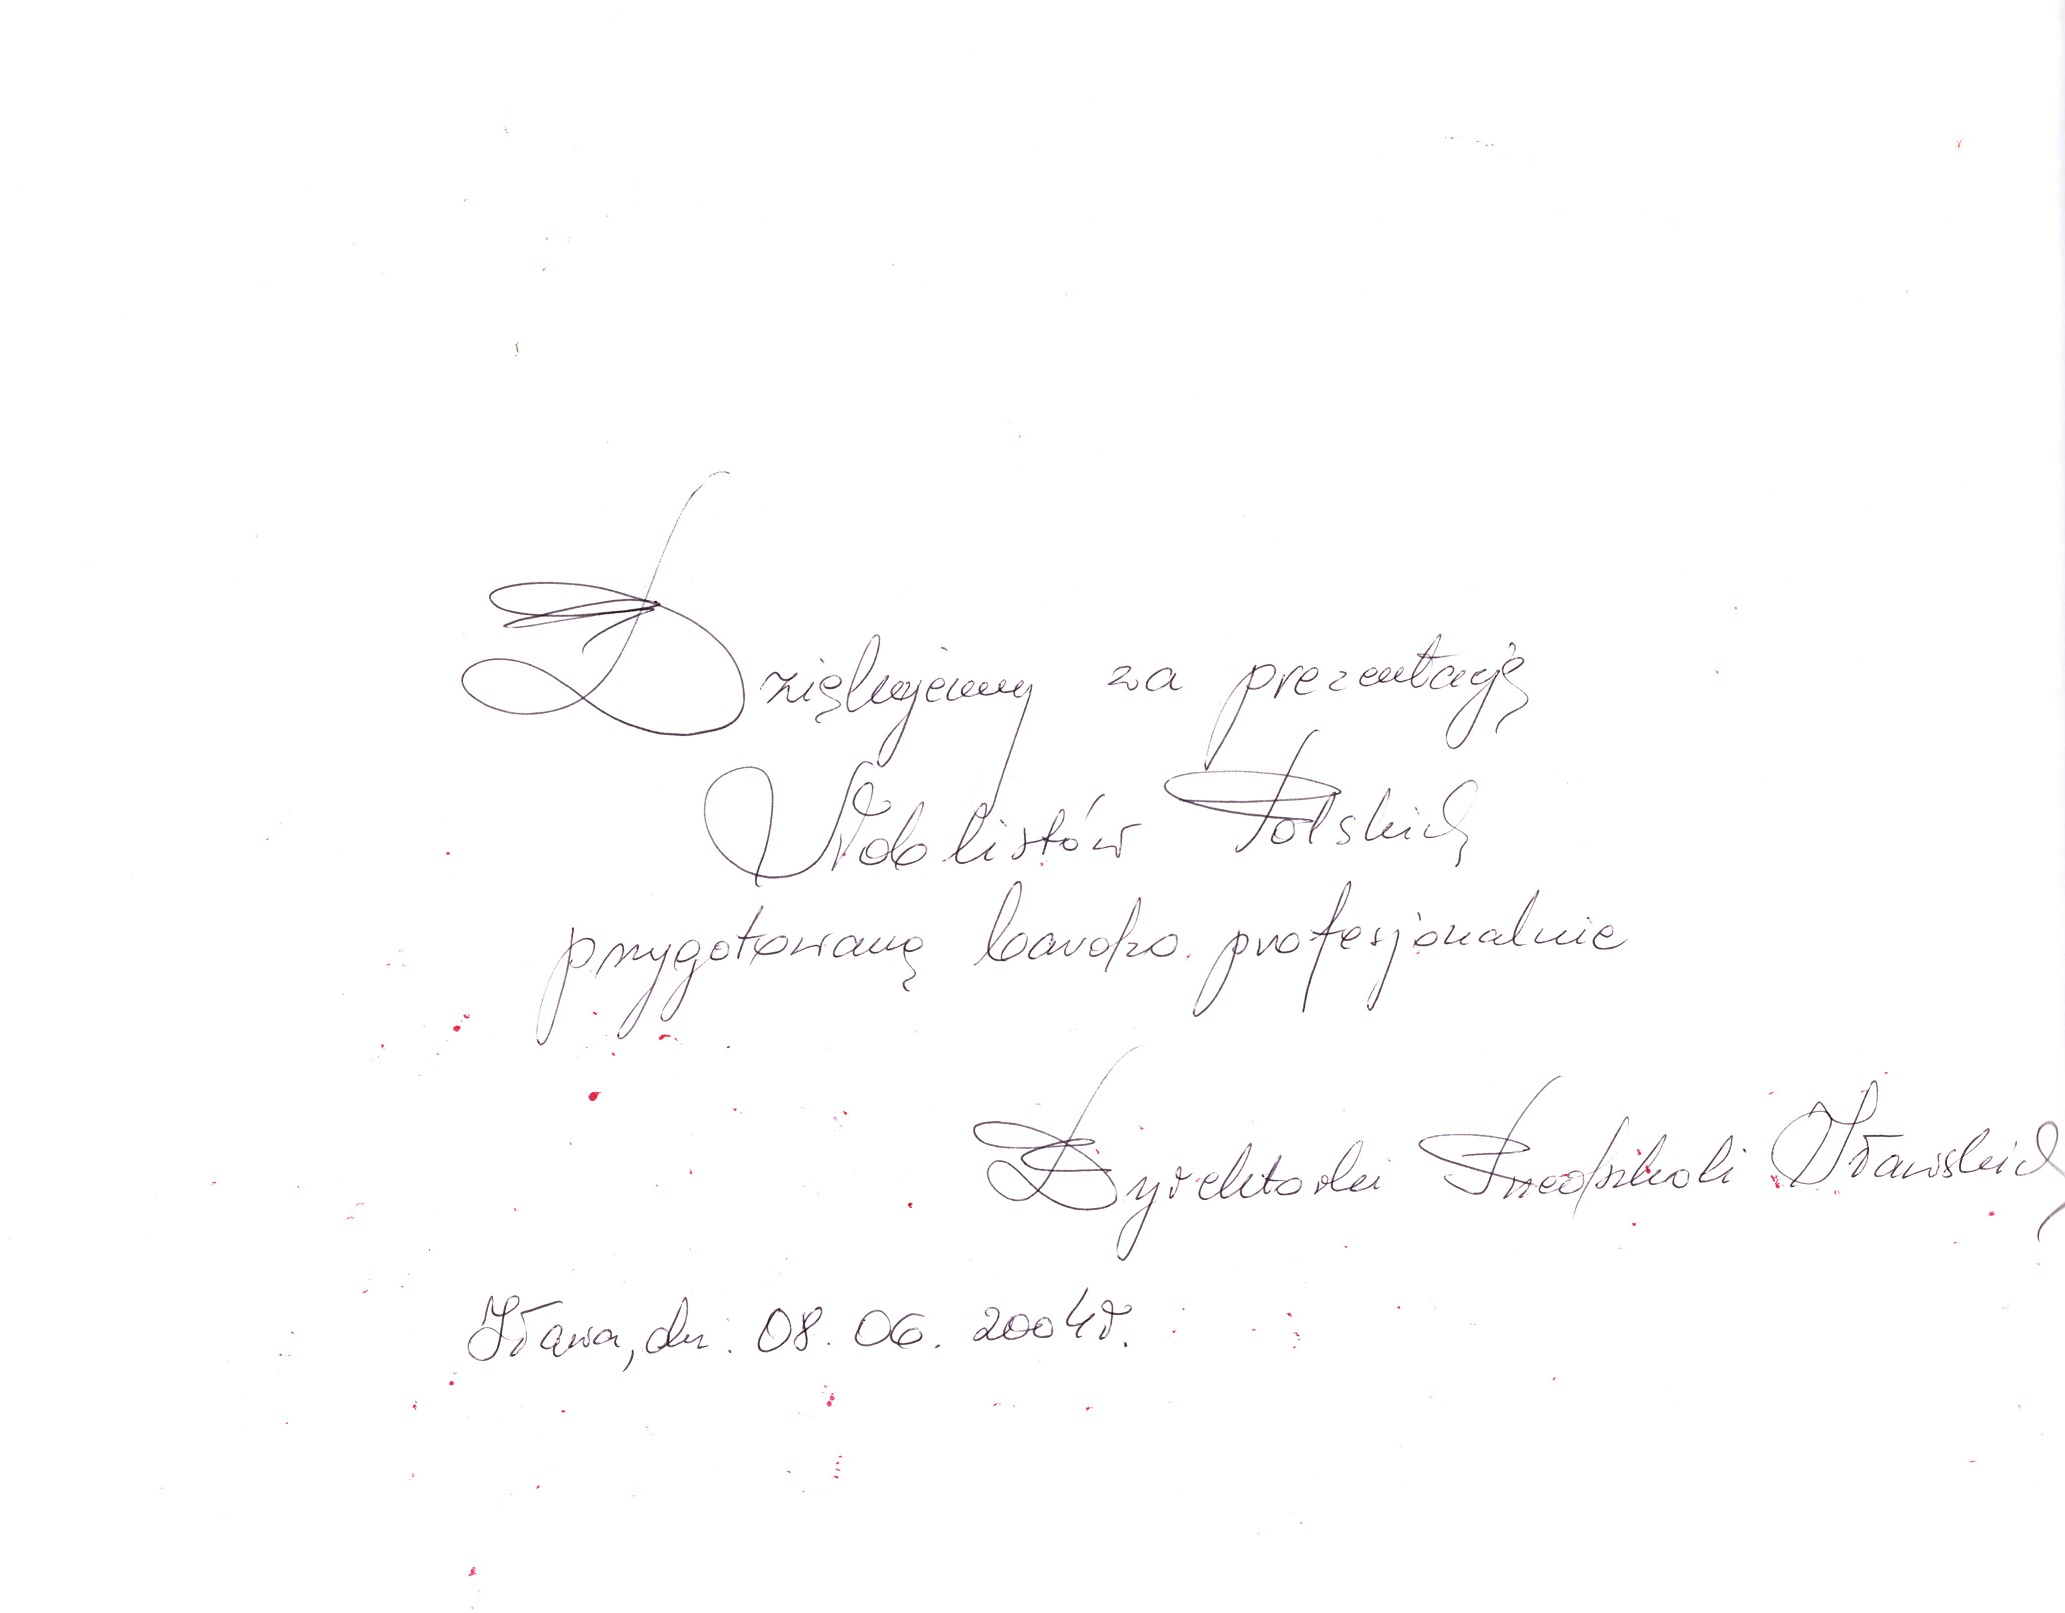 Dziękujemy za prezentację
Noblistów Polskich
przygotowaną bardzo profesjonalnie
Dyrektorki Przedszkoli Iławskich
Iława, dn. 08. 06. 2004r.